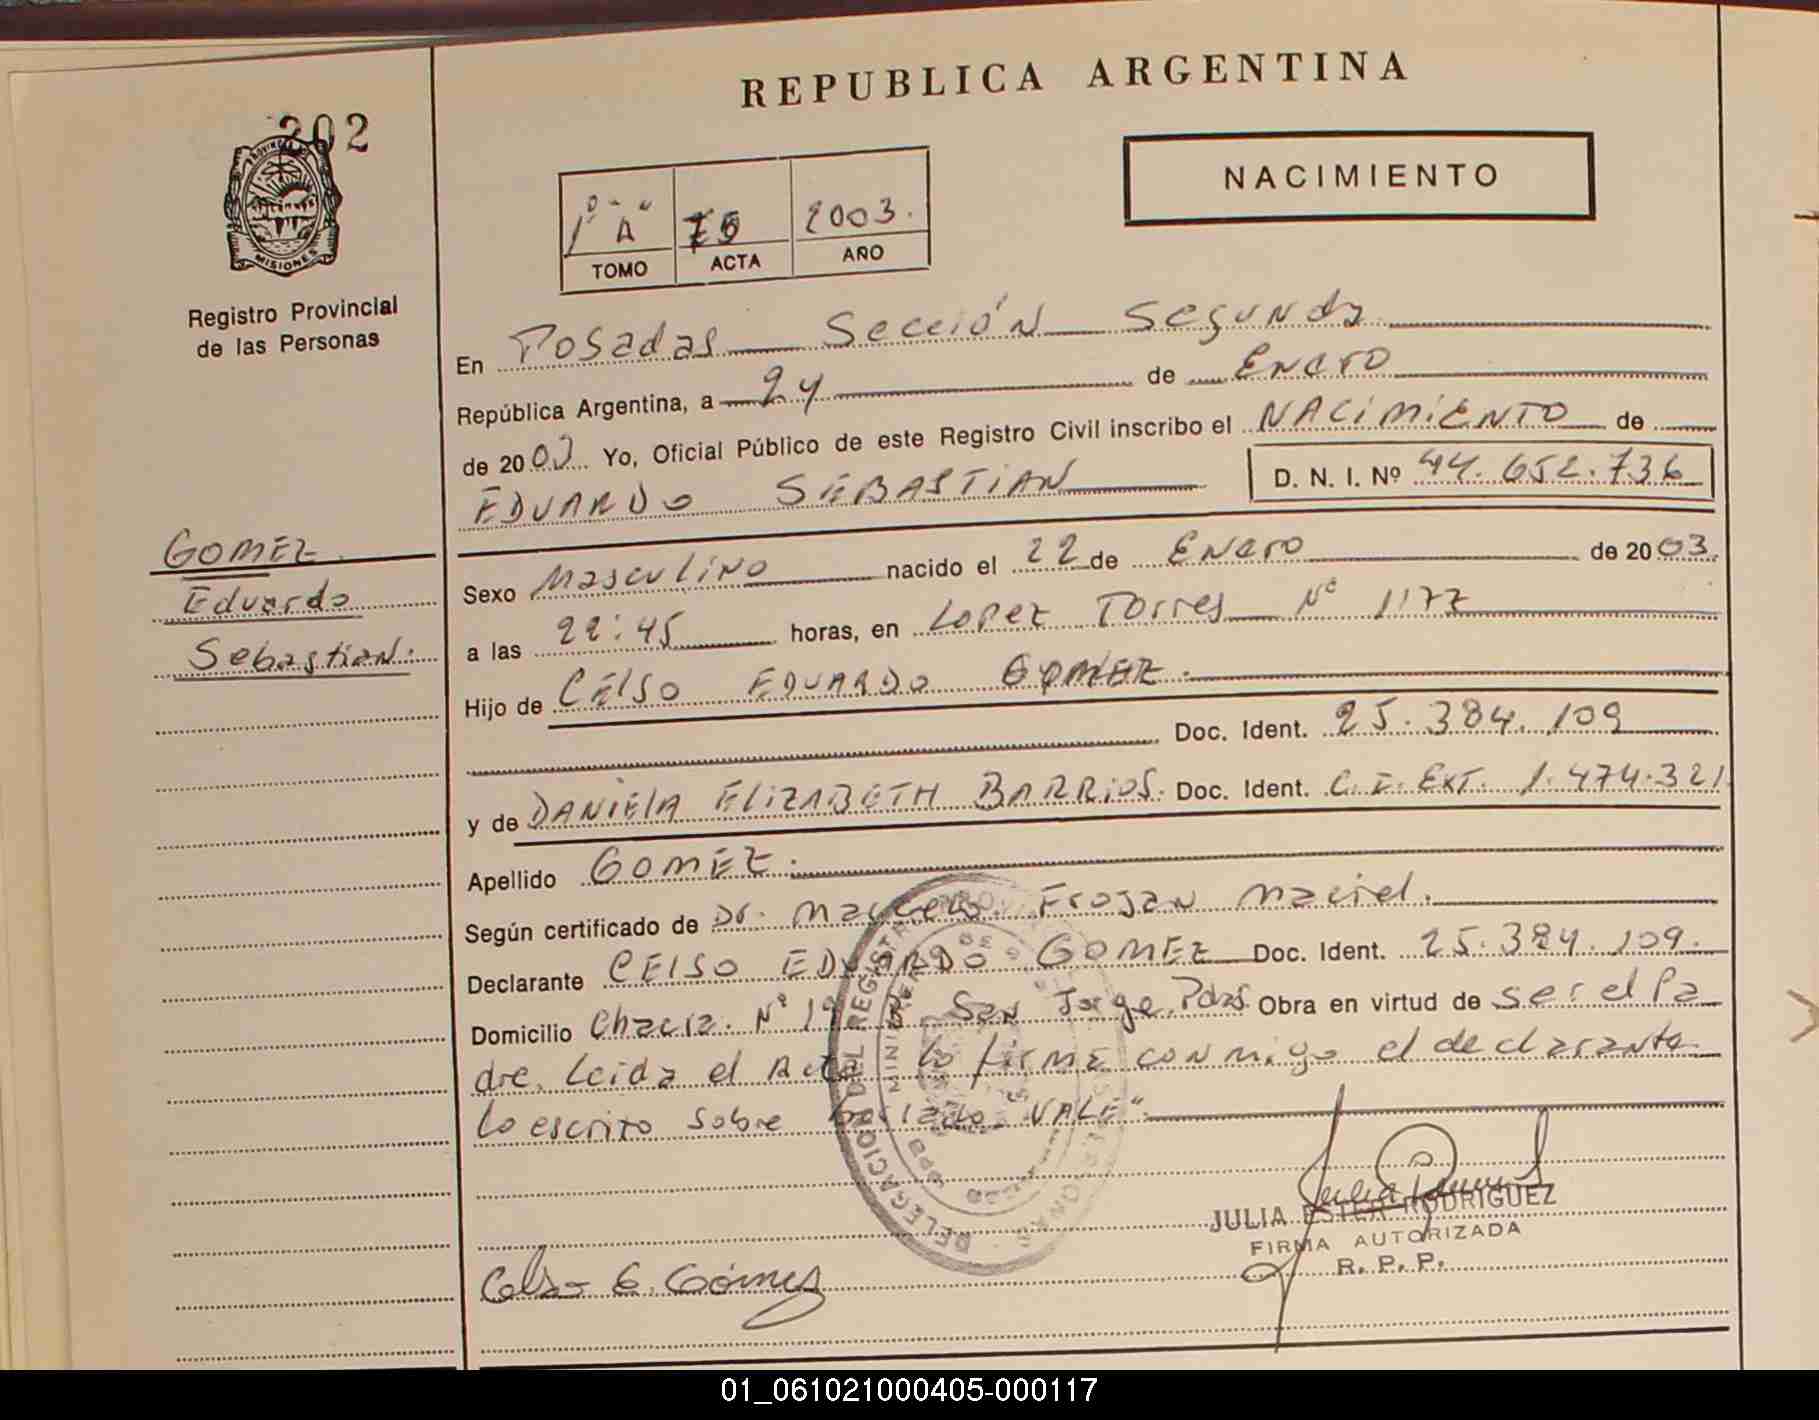 REPUBLICA ARGENTINA
202
PROVINCIA
MISIONES
Registro Provincial
de las Personas
NACIMIENTO
1º "A" 2003.
TOMO ACTA AÑO
En Posadas Sección Segunda
República Argentina, a 24 de Enero
de 2003 Yo, Oficial Público de este Registro Civil inscribo el NACIMIENTO de
EDUARDO SEBASTIAN D. N. I. Nº 44.652.736
GOMEZ
Eduardo
Sebastian.
Sexo Masculino nacido el 22 de Enero de 2003.
a las 22:45 horas, en Lopez Torres Nº 1177
Hijo de CELSO EDUARDO GOMEZ.
Doc. Ident. 25.384.109
y de DANIELA ELIZABETH BARRIOS. Doc. Ident. C.I. EXT. 1.474.321
Apellido GOMEZ.
Según certificado de Dr. Marcelo Frojan Maciel.
Declarante CELSO EDUARDO GOMEZ Doc. Ident. 25.384.109.
Domicilio Chacra. Nº San Jorge. Pdas. Obra en virtud de ser el Pa
dre. Leida el Acta lo firma conmigo el declarante
Lo escrito sobre borrado VALE".
DELEGACION DEL REGISTRO
JULIA ESTER RODRIGUEZ
FIRMA AUTORIZADA
R. P. P.
Celso E. Gómez
01_061021000405-000117